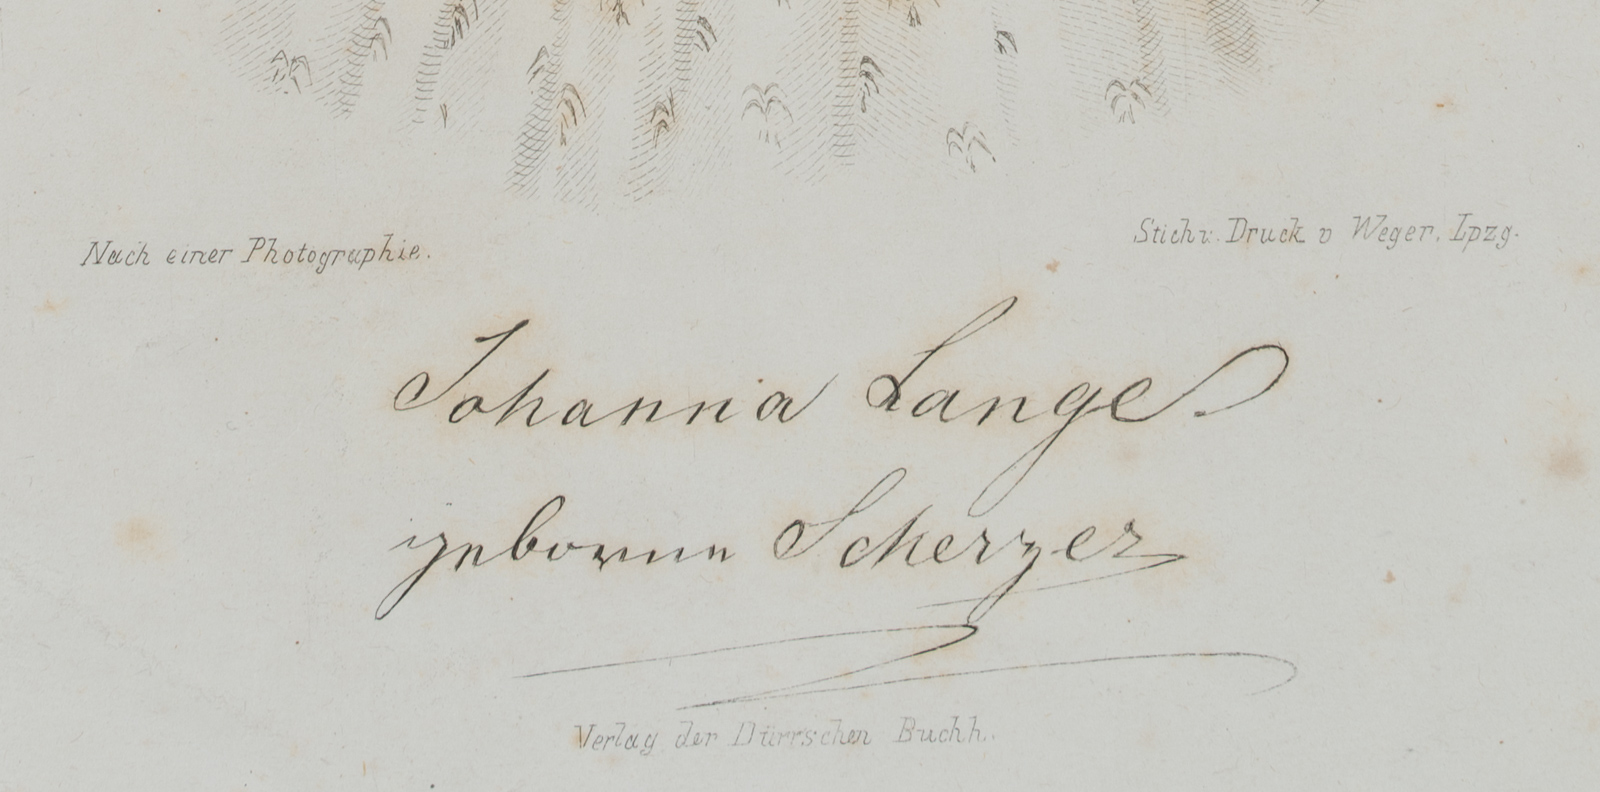 Nach einer Photographie.
Stich u. Druck v Weger, Lpzg.
Johanna Lange.
geborne Scherzer
Verlag der Dürrschen Buchh.